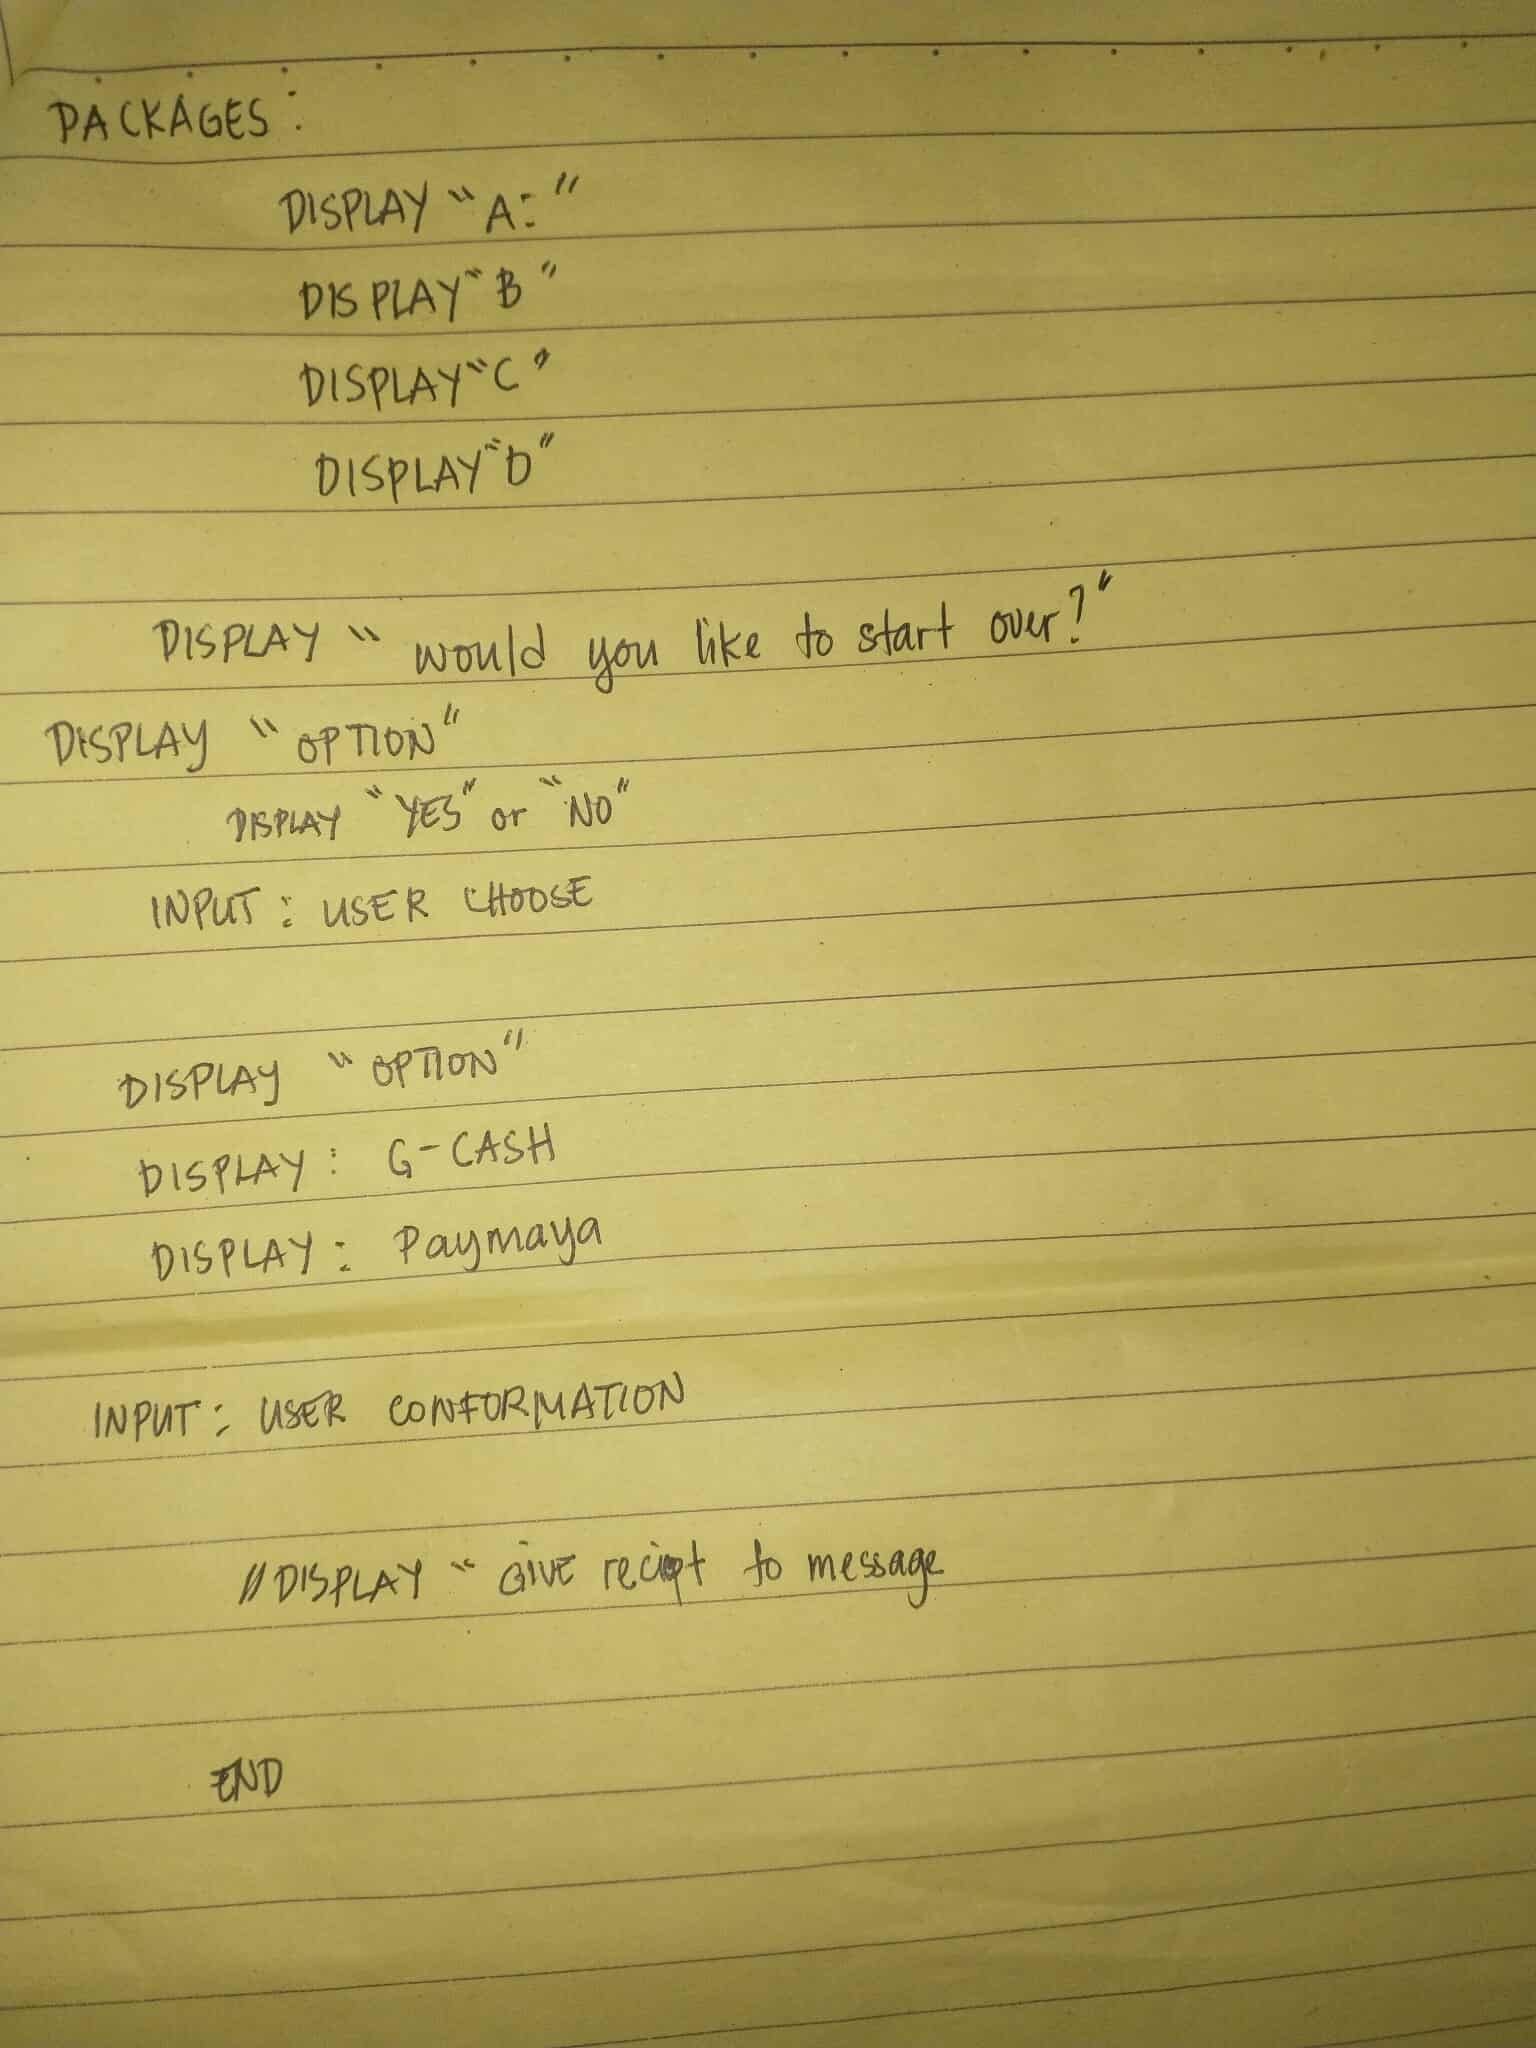 PACKAGES:
DISPLAY "A:"
DISPLAY "B"
DISPLAY "C"
DISPLAY "D"
DISPLAY "would you like to start over?"
DISPLAY "OPTION"
DISPLAY "YES" or "NO"
INPUT: USER CHOOSE
DISPLAY "OPTION"
DISPLAY: G-CASH
DISPLAY: Paymaya
INPUT: USER CONFORMATION
//DISPLAY "GIVE recipt to message
END